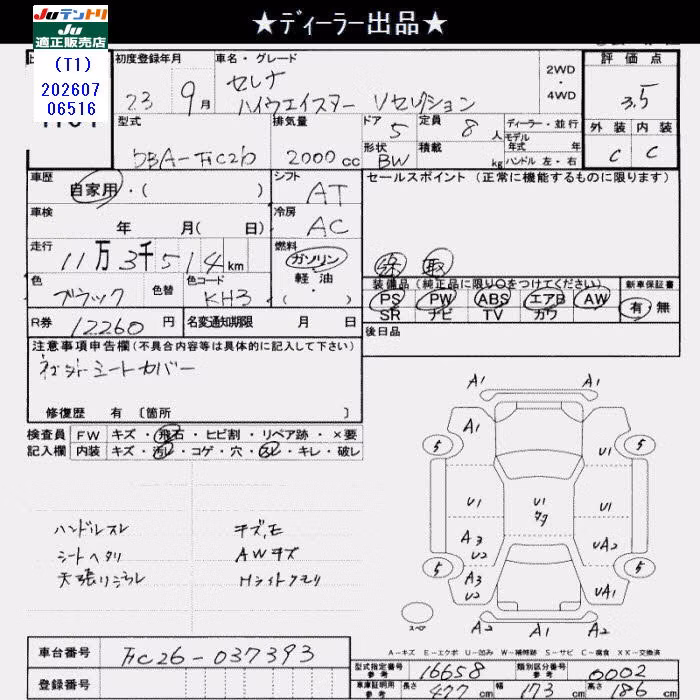 ★ディーラー出品★
JUテントリ
JU
適正販売店
(T1)
202607
06516
初度登録年月
車名・グレード
23 9月
セレナ
ハイウエイスター Vセレクション
2WD・4WD
評価点
3.5
外装 内装
C C
型式
DBA-FC26
排気量
2000cc
ドア 5
形状 BW
定員 8人
積載 kg
ディーラー・並行
モデル年式 年
ハンドル 左・右
車歴
自家用・( )
シフト
AT
セールスポイント(正常に機能するものに限ります)
車検
年 月( 日)
冷房
AC
走行
11万3千514km
燃料
ガソリン
軽油
( )
色
ブラック
色替
色コード
KH3
装備品(純正品に限り○をつけてください)
PS PW ABS エアB AW
SR ナビ TV カワ
新車保証書
有・無
R券 12260円
名変通知期限 月 日
後日品
注意事項申告欄(不具合内容等は具体的に記入して下さい)
シートカバー
修復歴 有〔箇所 〕
検査員 FW キズ・飛石・ヒビ割・リペア跡・×要
記入欄 内装 キズ・汚レ・コゲ・穴・スレ・キレ・破レ
ハンドルスレ
シートヘタリ
天張りヨゴレ
キズ,E
AWキズ
Hライトクモリ
A1 A1
A1
5 5
U1
U1 U1 U1
A3
U2
UA2
5 5
A3
U2
UA1
A2 UA1 A2
スペア
A-キズ E-エクボ U-凹み W-補修跡 S-サビ C-腐食 XX-交換済
車台番号
FC26-037393
登録番号
型式指定番号
参考
16658
類別区分番号
参考
0002
車庫証明用
参考
長さ 477cm
幅 173cm
高さ 86cm